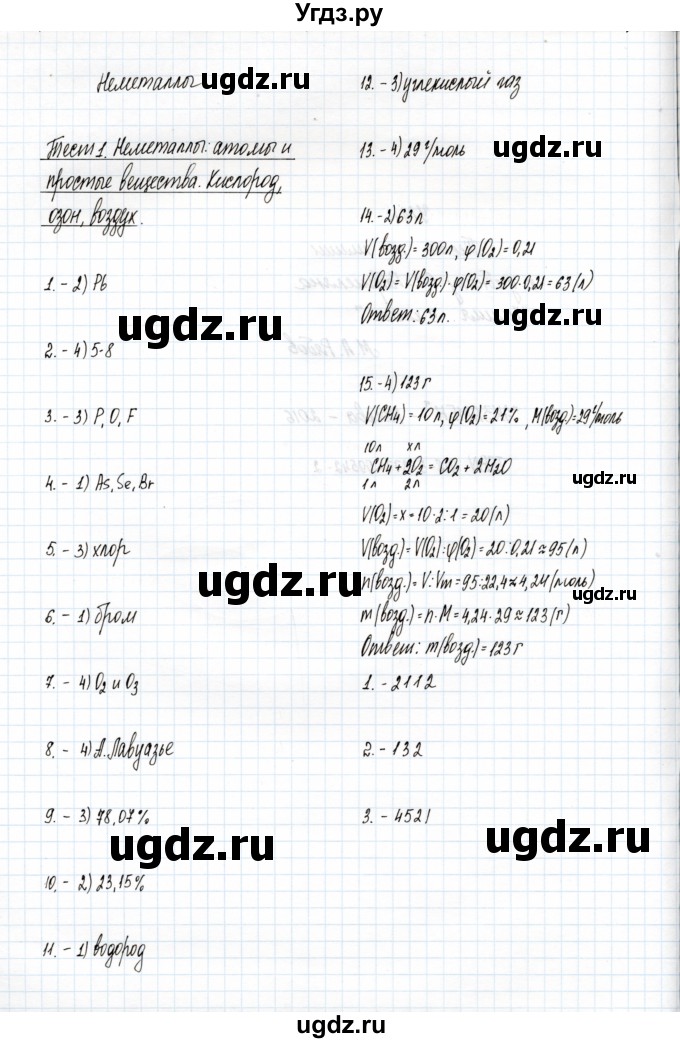 Угдз.ру
Неметаллы
Тест 1. Неметаллы: атомы и
простые вещества. Кислород,
озон, воздух.
1. - 2) Pb
2. - 4) 5-8
3. - 3) P, O, F
4. - 1) As, Se, Br
5. - 3) хлор
6. - 1) бром
7. - 4) O₂ и O₃
8. - 4) А. Лавуазье
9. - 3) 78,07%
10. - 2) 23,15%
11. - 1) водород
12. - 3) углекислый газ
13. - 4) 29 г/моль
14. - 2) 63 л
V(возд.) = 300л, φ(O₂) = 0,21
V(O₂) = V(возд.)·φ(O₂) = 300·0,21 = 63 (л)
Ответ: 63 л.
15. - 4) 123 г
V(CH₄) = 10 л, φ(O₂) = 21%, M(возд.) = 29 г/моль
10 л x л
CH₄ + 2O₂ = CO₂ + 2H₂O
1 л 2 л
V(O₂) = x = 10·2:1 = 20 (л)
V(возд.) = V(O₂):φ(O₂) = 20:0,21 ≈ 95 (л)
n(возд.) = V:Vm = 95:22,4 ≈ 4,24 (моль)
m(возд.) = n·M = 4,24·29 ≈ 123 (г)
Ответ: m(возд.) = 123 г
1. - 2112
2. - 132
3. - 4521
ugdz.ru
ugdz.ru
ugdz.ru
ugdz.ru
ugdz.ru
ugdz.ru
ugdz.ru
ugdz.ru
ugdz.ru
ugdz.ru
ugdz.ru